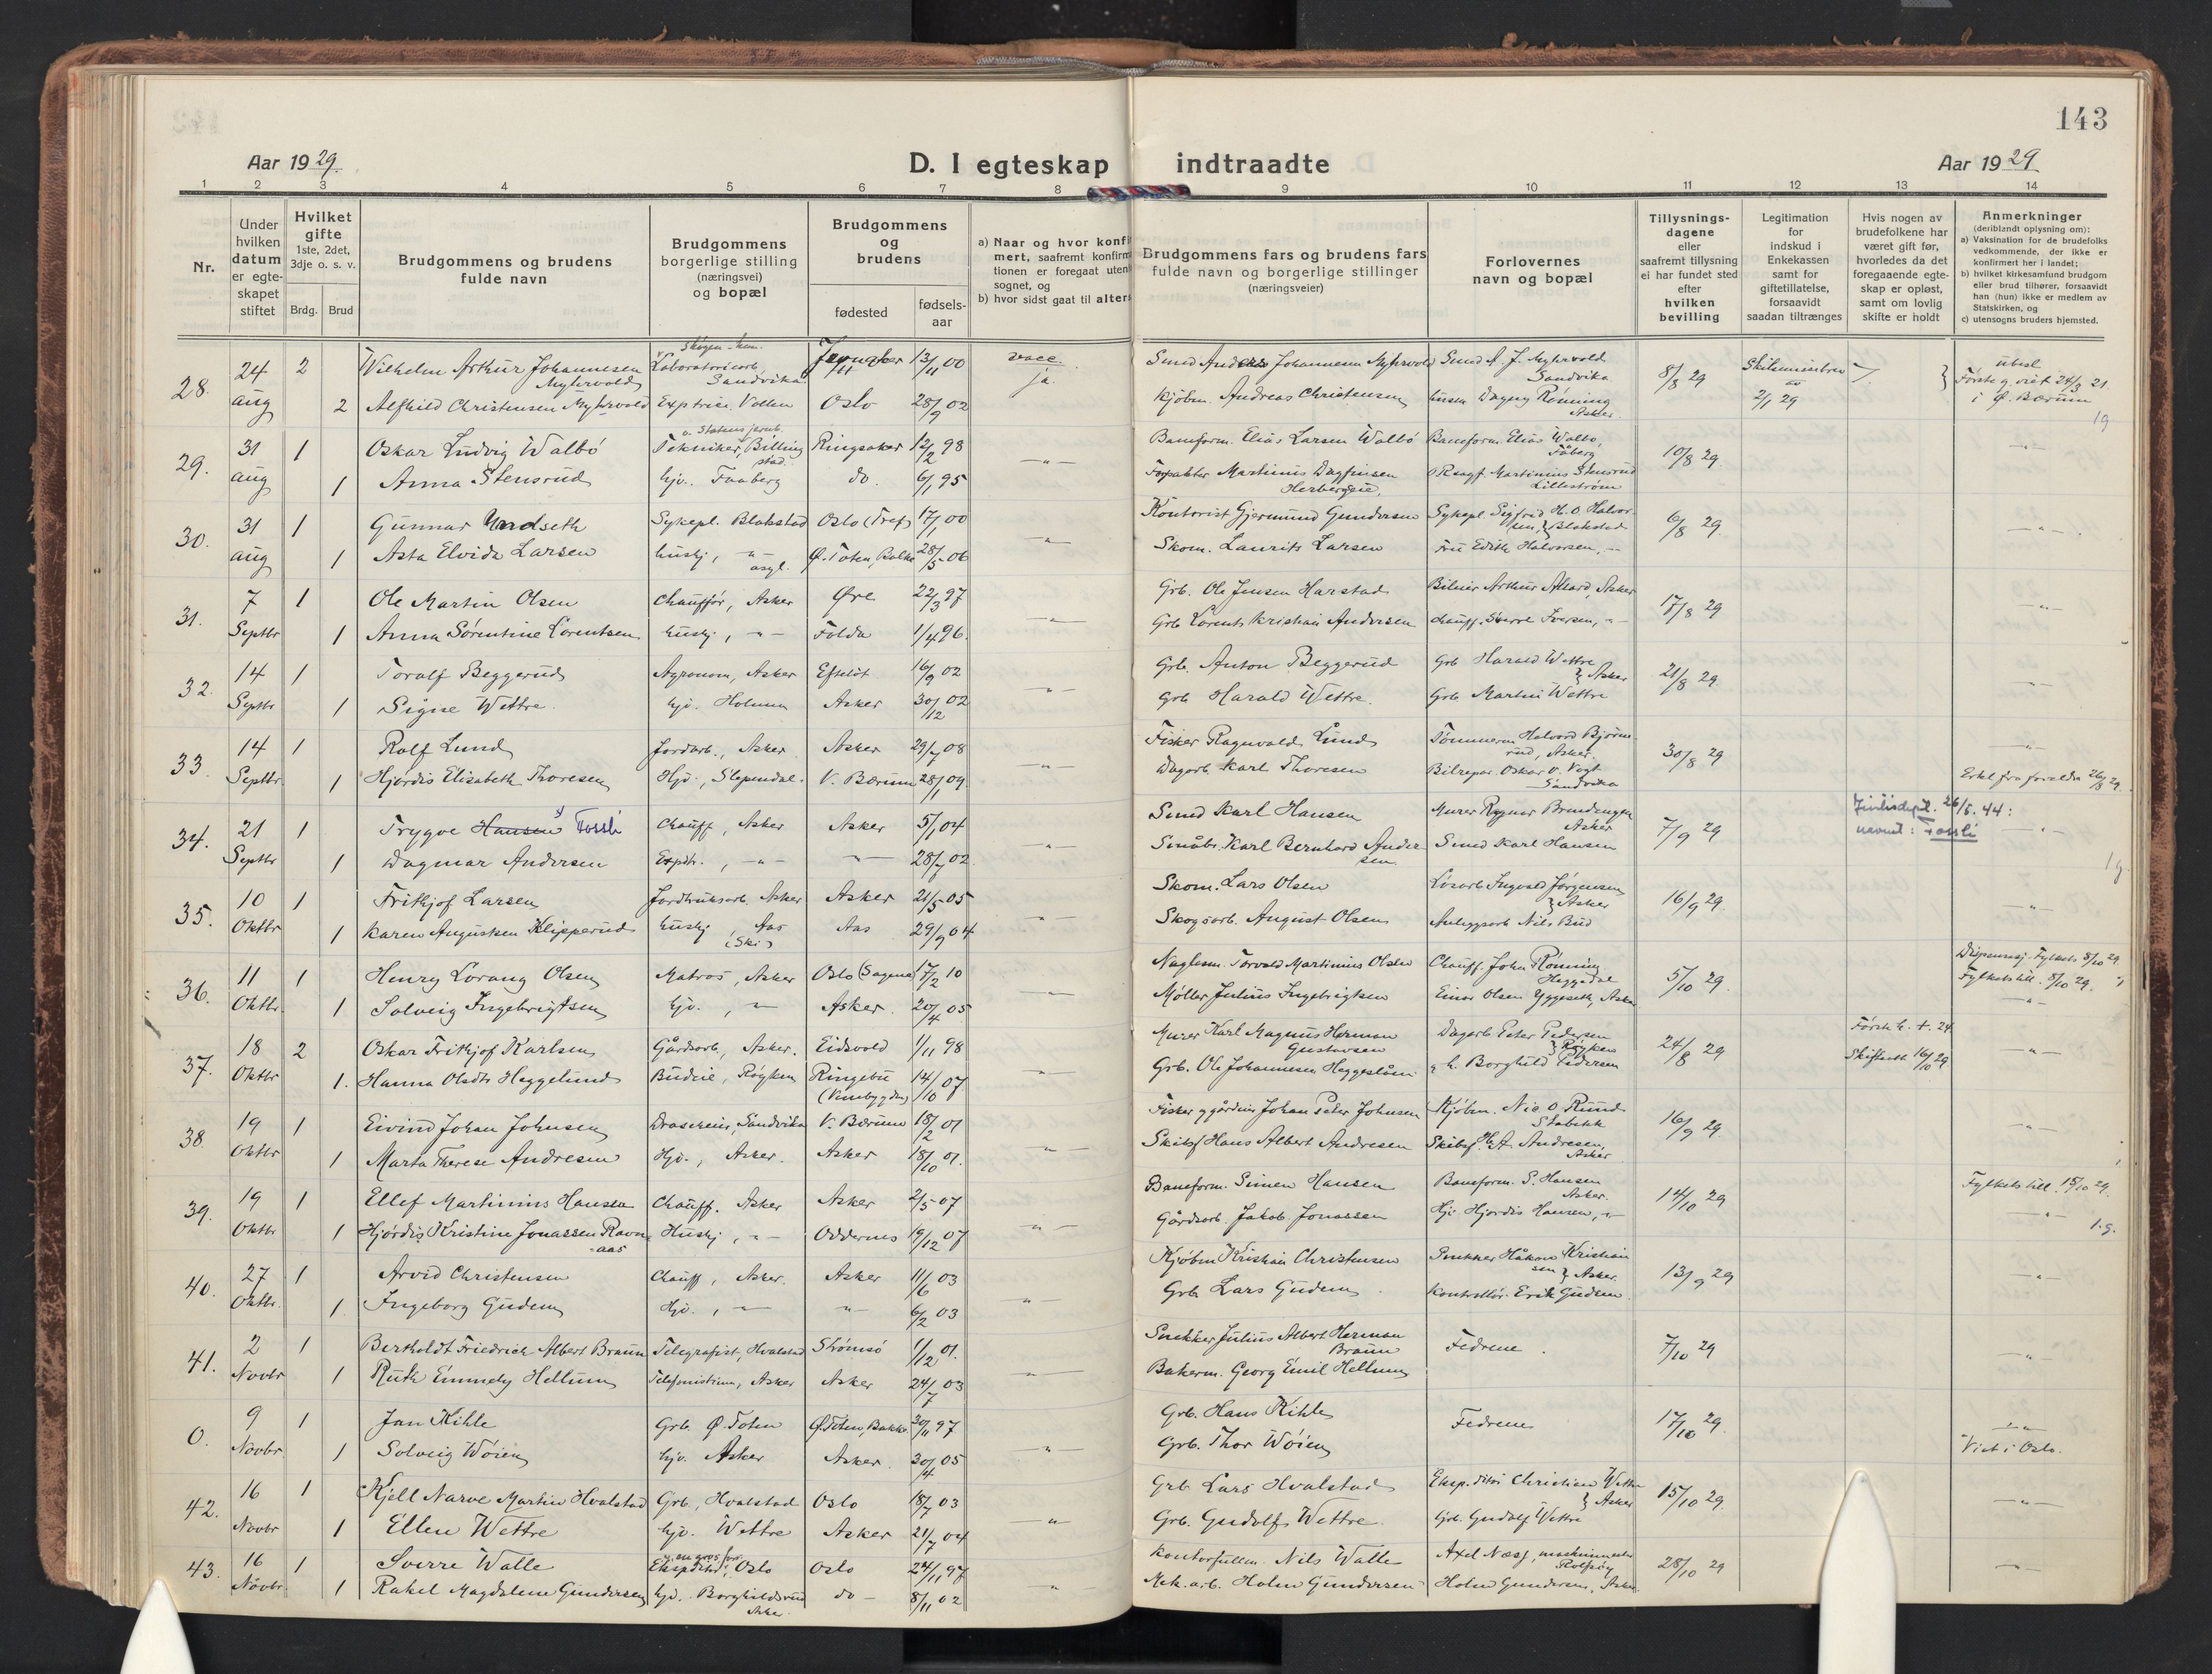 143
Aar 1929.
D. I egteskap indtraadte
Aar 1929
1 2 3 4 5 6 7 8 9 10 11 12 13 14
Nr.
Under hvilken datum er egteskapet stiftet
Hvilket gifte
1ste, 2det, 3dje o. s. v.
Brdg. Brud
Brudgommens og brudens fulde navn
Brudgommens borgerlige stilling (næringsvei) og bopæl
Brudgommens og brudens
fødested
fødsels-aar
a) Naar og hvor konfi
mert, saafremt konfirm
tionen er foregaat uten
sognet, og
b) hvor sidst gaat til alter
Brudgommens fars og brudens fars
fulde navn og borgerlige stillinger
(næringsveier)
Forlovernes
navn og bopæl
Tillysnings-
dagene
eller
saafremt tillysning
ei har fundet sted
efter
hvilken
bevilling
Legitimation
for
indskud i
Enkekassen
samt for
giftetillatelse,
forsaavidt
saadan tiltrænges
Hvis nogen av
brudefolkene har
været gift før,
hvorledes da det
foregaaende egte-
skap er opløst,
samt om lovlig
skifte er holdt
Anmerkninger
(deriblandt oplysning om):
a) Vaksination for de brudefolks
vedkommende, der ikke er
konfirmert her i landet;
b) hvilket kirkesamfund brudgom
eller brud tilhører, forsaavidt
han (hun) ikke er medlem av
Statskirken, og
c) utensogns bruders hjemsted.
28. 24 aug 2 Wilhelm Arthur Johannesen Myhrvold Laboratoriearb, Sandvika 13/11 00 vacc. ja. Smed Anders Johannesen Myhrvold Smed A. J. Myhrvold Sandvika 8/8 29 2/1 29
2 Alfhild Christensen Myhrvold Exp.trice. Vollen Oslo 28/9 02 Kjøbm. Andreas Christensen Dagny Rønning Asker i Ø. Bærum
29. 31 aug 1 Oskar Ludvig Walbö Tekniker, Billingstad Ringsaker 12/2 98 Baneform. Elias Larsen Walbö Baneform. Elias Walbö, Fåberg 10/8 29.
1 Anna Stensrud hjv. Faaberg do. 6/1 95 Martinus Dagfinsen Martinius Stensrud Lillestrøm
30. 31 aug 1 Gunnar Undseth Sykepl. Blakstad Oslo 17/1 00 Kontorist Gjermund Gundersen Sykepl. Sigfrid H. O. Halvorsen, Blakstad 6/8 29
1 Asta Elvida Larsen hushj, asyl. Ø. Toten, Balke 28/5 06 Skom. Laurits Larsen Fru Edith Halvorsen, -"-
31. 7 Septbr 1 Ole Martin Olsen Chauffør, Asker Øre 22/3 97 Grb. Ole Jensen Harstad Bileier Arthur Allard, Asker 17/8 29
1 Anna Sørentine Lorentsen hushj, -"- Folda 1/4 96. Grb Lorents Kristian Andersen Chauff. Sverre Iversen, -"-
32. 14 Septbr 1 Toralf Beggerud Agronom, Asker Efteløt 16/9 02 Grb. Anton Beggerud Grb Harald Wettre Asker 21/8 29.
1 Signe Wettre. hjv. Holmen Asker 30/12 02 Grb Harald Wettre. Grb. Martin Wettre
33. 14 Septbr. 1 Rolf Lund Jordarb., Asker Asker 29/7 08 Fisker Ragnvald Lund Tømmerm Halvord Bjørnsrud, Asker. 30/8 29
1 Hjørdis Elisabeth Thoresen Hjv., Slependen. V. Bærum 28/1 09. Dagarb. Karl Thoresen Bilrepar. Oskar O. Vogt Sandvika Erkl. fra foreldre 26/8 29.
34. 21 Septbr 1 Trygve Hansen Fossli Chauff, Asker Asker 5/1 04 Smed Karl Hansen Murer Ragnar Brendengen Asker 7/9 29 26/5. 44: navnet: Fossli
1 Dagmar Andersen Expdtr., -"- -"- 28/7 02 Småbr. Karl Bernhard Andersen Smed Karl Hansen
35. 10 Oktbr 1 Frithjof Larsen Jordbruksarb. Asker Asker 21/5 05 Skom. Lars Olsen Løsarb Ingvald Jørgensen Asker 16/9 29.
1 Karen Augusten Klipperud hushj, Aas (Ski) Aas 29/9 04 Skogsarb. August Olsen Anleggsarb Nils Bud
36. 11 Oktbr. 1 Henry Lorang Olsen Matros, Asker Oslo (Sagene) 17/2 10 Naglesm. Torvald Martinius Olsen Chauff. John Rönning Heggedal 5/10 29. Fylkets till. 8/10 29.
1 Solveig Ingebrigtsen hjv., -"- Asker. 20/4 05 Møller Julius Ingebrigtsen Einar Olsen Yggeseth, Asker
37. 18 Oktbr 2 Oskar Frithjof Karlsen Gårdsarb., Asker. Eidsvold 1/11 98 Murer Karl Magnus Herman Gustavsen Dagarb Peter Pedersen Røyken 24/8 29 Første h. + 24. Skifteatt 16/10 29
1. Hanna Olsdtr Heggelund Budeie, Røyken Ringebu 14/10 07 Grb. Ole Johannesen Heggeslåen Borghild Pedersen
38. 19 Oktbr 1 Eivind Johan Johnsen Drosjeeier, Sandvika V. Bærum 18/2 01 Fisker og gårdeier Johan Peter Johnsen Kjøbm. Nic O. Rund Stabekk 16/9 29.
1 Marta Therese Andresen Hjv., Asker. Asker 18/10 01. Skibsf Hans Albert Andresen Skibsf. H. A. Andresen, Asker
39. 19 Oktbr 1 Ellef Martinius Hansen Chauff. Asker Asker 2/5 07 Baneform. Simen Hansen Baneform. S. Hansen Asker. 14/10 29 Fylkets till. 15/10 29.
1 Hjørdis Kristine Jonassen Ravnaas Hushj, -"- Oddernes 19/12 07 Gårdsarb. Jakob Jonassen Hjv. Hjørdis Hansen, -"- 1.g.
40. 27 Oktbr. 1 Arvid Christensen Chauff, Asker. Asker 11/6 03 Kjøbm Kristian Christensen Snekker Håkon Kristiansen Asker. 13/9 29
1 Ingeborg Gudem Hjv., -"- -"- 6/2 03 Grb Lars Gudem Kontrollør. Erik Gudem.
41. 2 Novbr 1 Bertholdt Friedrich Albert Braun Telegrafist, Hvalstad Strömsö 1/12 01. Snekker Julius Albert Herman Braun Fedrene. 7/10 29
1 Ruth Emmely Hellum Telefonistinne, Asker Asker 24/7 03 Bakerm. Georg Emil Hellum
0. 9 Novbr 1 Jan Kihle Grb. Ø. Toten Ø. Toten, Balke 30/11 97 Grb. Hans Kihle Fedrene 17/10 29.
1 Solveig Wøien hjv. Asker Asker. 30/4 05 Grb. Thor Wøien Viet i Oslo.
42. 16 Novbr 1 Kjell Narve Martin Hvalstad Grb, Hvalstad Oslo 18/7 03 Grb Lars Hvalstad Eksp.ditör Christian Wettre Asker 15/10 29.
1 Ellen Wettre hjv. Wettre Asker 21/7 04 Grb. Gudolf Wettre. Grb. Gudolf Wettre
43. 16 Novbr. 1 Sverre Walle Ekspeditör, Oslo Oslo 24/11 97 Kontorfullm. Nils Walle Axel Næss, maskinmester Rolfsøy 28/10 29
1 Rakel Magdalene Gundersen hjv. Borghildsrud Asker. do - 8/11 02 Mek. arb. Holm Gundersen Holm Gundersen, Asker